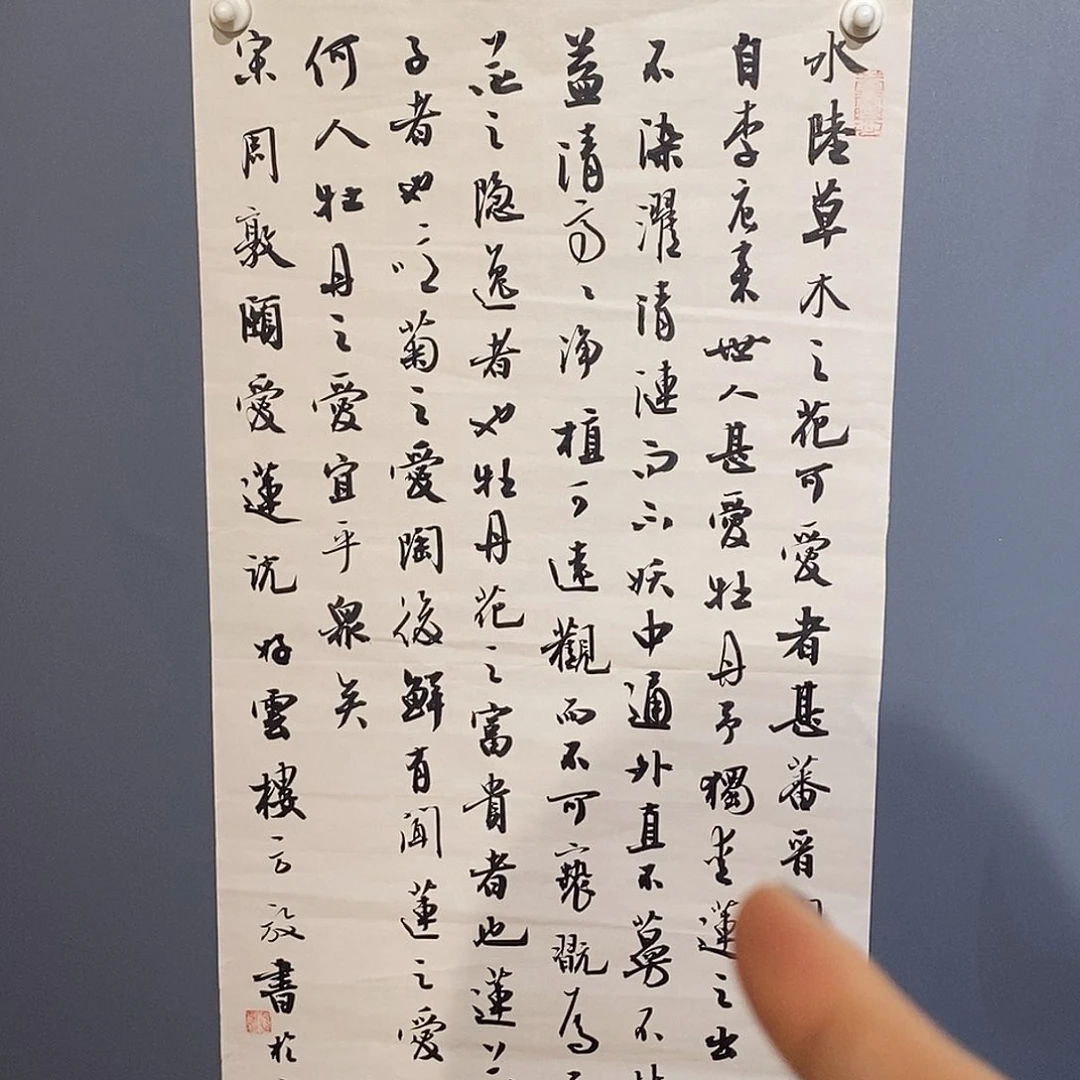 水陸草木之花可愛者甚蕃晋
自李唐来世人甚愛牡丹予獨爱蓮之出
不染濯清漣而不妖中通外直不蔓不
益清亭〻净植可遠觀而不可褻翫焉
花之隐逸者也牡丹花之富貴者也蓮
子者也噫菊之愛陶後鮮有聞蓮之愛
何人牡丹之愛宜乎衆矣
宋周敦頤愛蓮説好雲樓放書於